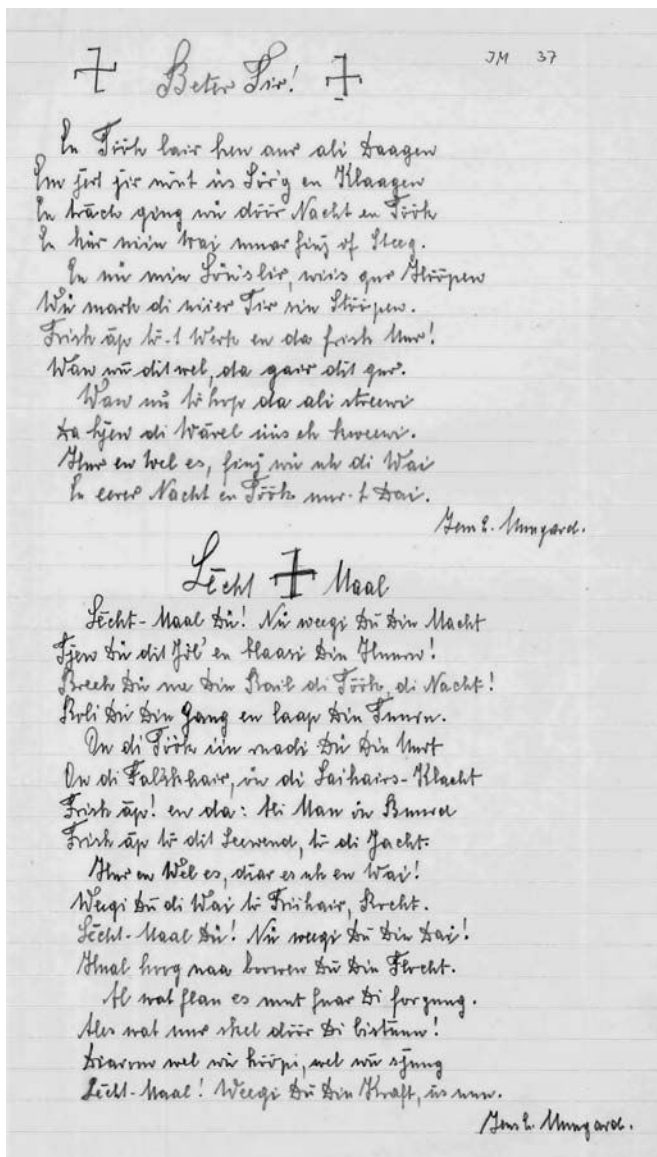 JM 37
Beter Tir!
En Töök lair hen aur ali Daagen
Em jert jir münt üs Sörig en Klaagen
En träch ging wü döör Nacht en Töök
En kür niin Wai muar finj of Steeg.
En nü min Sön'slir, wiis gur Hööpen
Wü mark di niier Tir sin Stööpen.
Frisk äp tö-t Werk en da frisk Mur!
Wan wü dit wel, da gair dit gur.
Wan nü töhop da ali streewi
Da kjen di Wārel üüs ek kweewi.
Hur en Wel es, finj wü uk di Wai
En eeter Nacht en Töök uur-t Dai.
Jens E. Mungard.
Lēcht Maal
Lēcht-Maal Dü! Nü weegi Dü Din Macht
Tjen Dü dit Jöl' en blaasi Din Huurn!
Breek Dü me Din Stail di Töök, di Nacht!
Roli Dü Din Gang en laap Din Tuurn.
Ön di Töök iin madi Dü Din Uurt
Ön di Falskhair, ön di Laihairs-Klacht
Frisk äp! en da: Ali Man ön Buurd
Frisk äp tö dit Leewend, tö di Jacht.
Hur en Wel es, diar es uk en Wai!
Weegi Dü di Wai tö Friihair, Rocht.
Lēcht-Maal Dü! Nü weegi Dü Din Dai!
Hual hoog naa boowen Dü Din Flocht.
Al wat flau es mut fuar Di forgung.
Ales wat uur skel döör Di bistuun!
Diarom wel wü hööpi, wel wü sjung
Lēcht-Maal! Weegi Dü Din Kraft, üs nuu.
Jens E. Mungard.